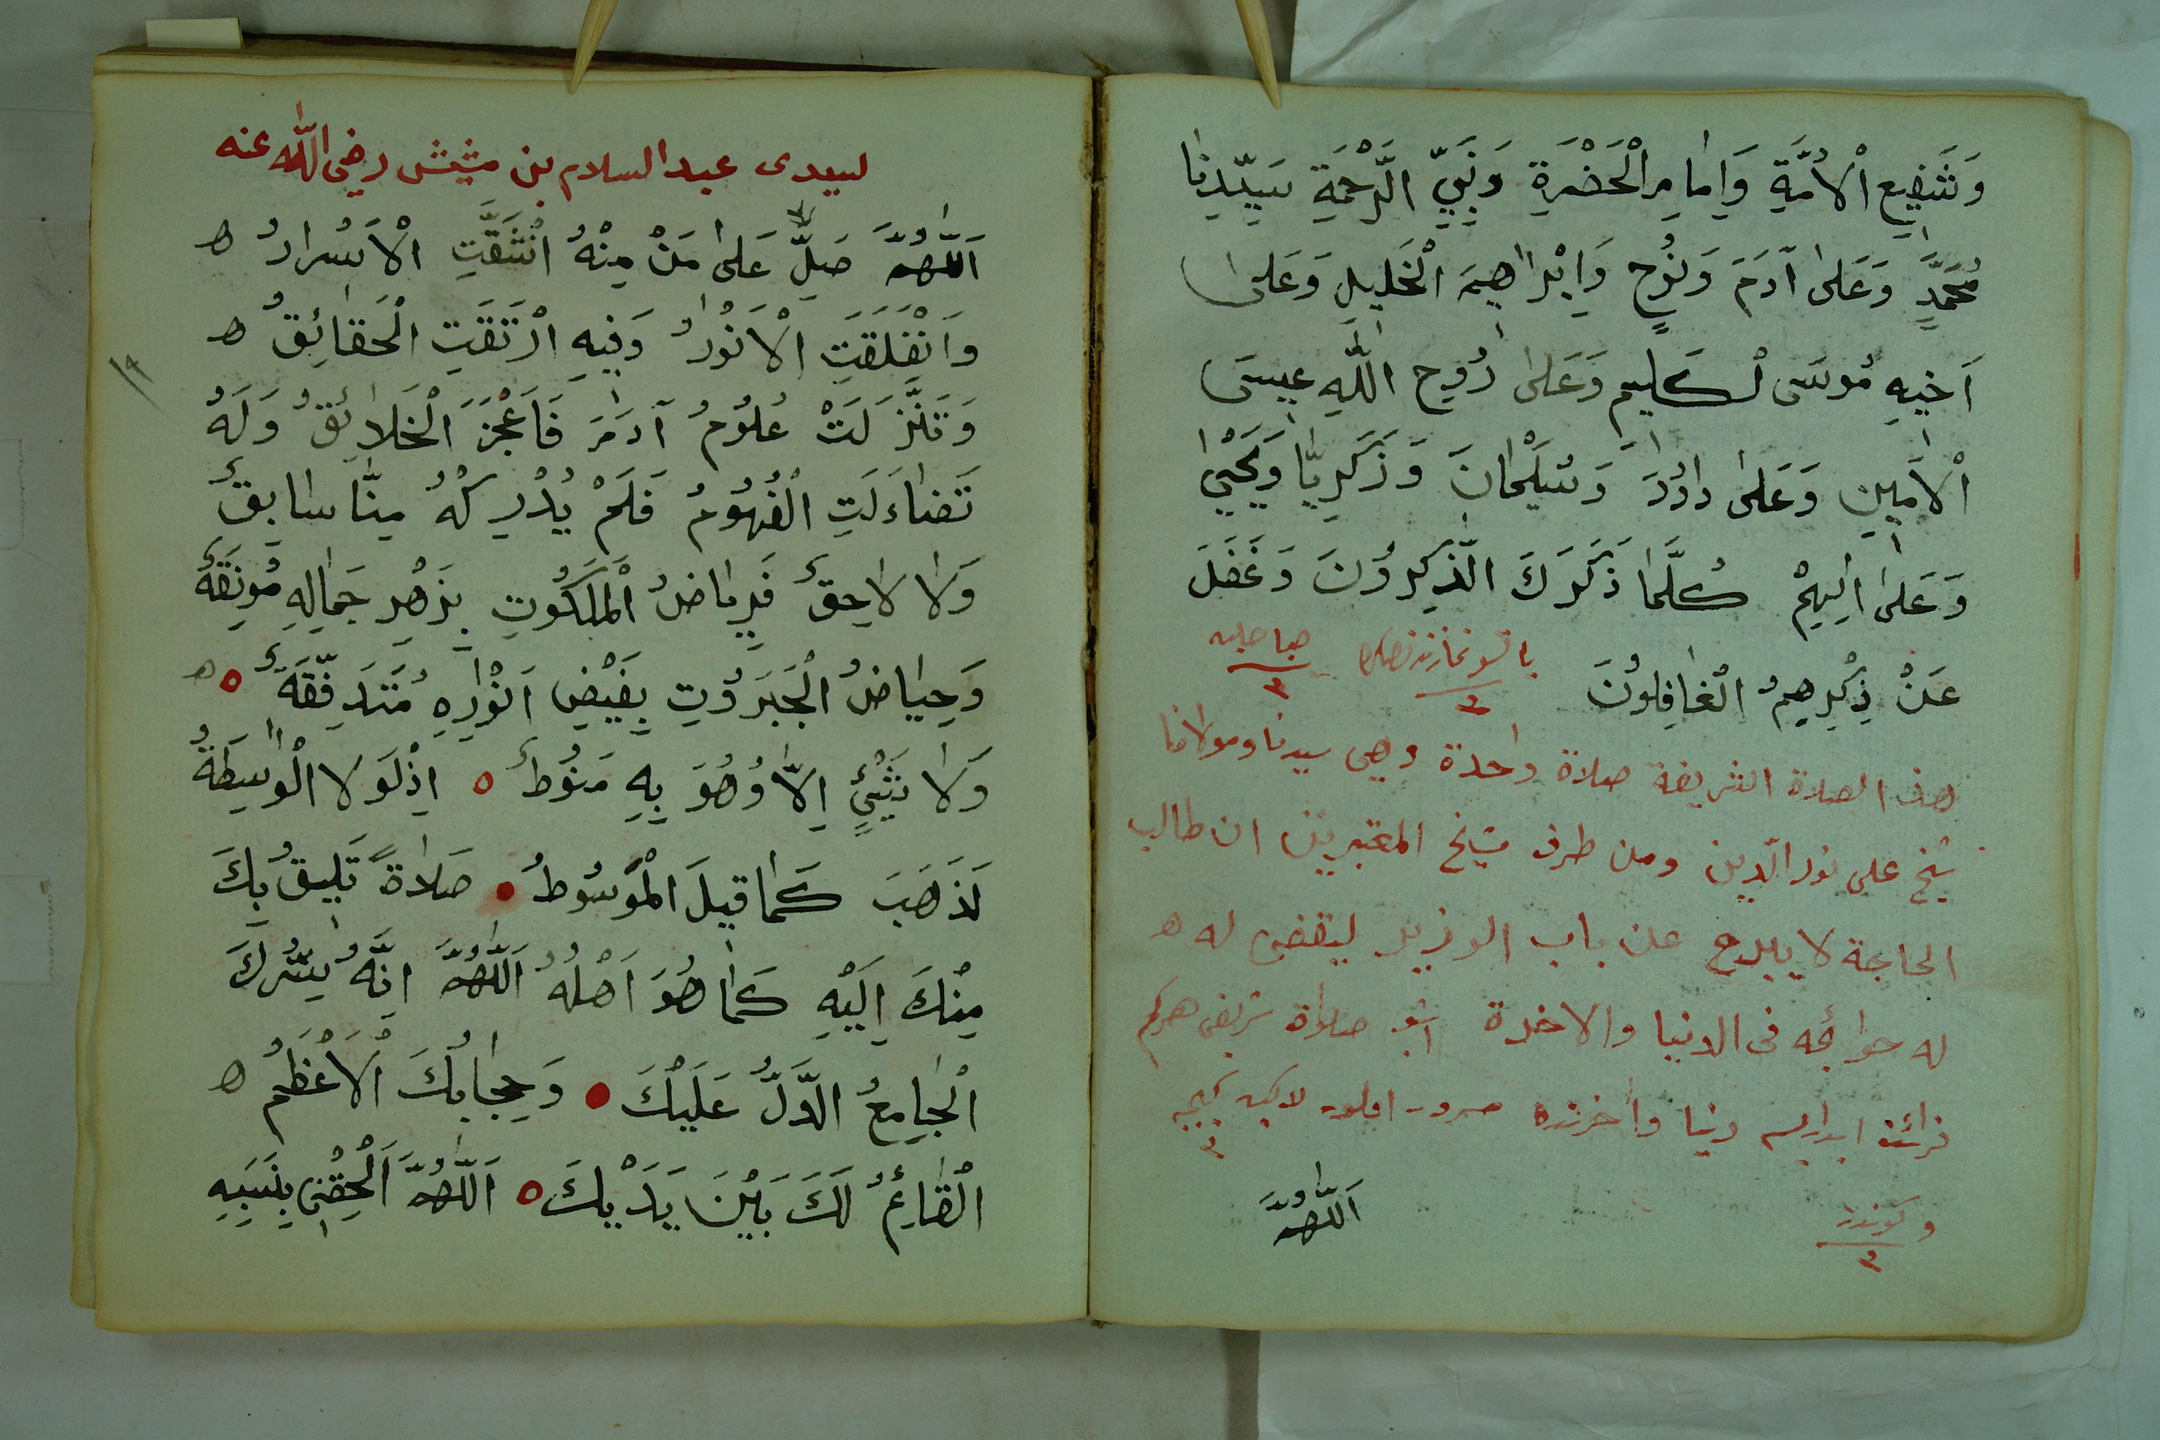 وَشَفِيعِ الْاُمَّةِ وَاِمَامِ الْحَضْرَةِ وَنَبِيِّ الرَّحْمَةِ سَيِّدِنَا
مُحَمَّدٍ وَعَلٰى آدَمَ وَنُوحٍ وَاِبْرٰاهِيمَ الْخَلِيلِ وَعَلٰى
اَخِيهِ مُوسَى لْكَلِيمِ وَعَلٰى رُوحِ اللّٰهِ عِيسَى
الْاَمِينِ وَعَلٰى دٰاوُدَ وَسُلَيْمَانَ وَزَكَرِيَّا وَيَحْيٰى
وَعَلٰى اٰلِهِمْ كُلَّمَا ذَكَرَكَ الذّٰكِرُونَ وَغَفَلَ
عَنْ ذِكْرِهِمُ الْغَافِلُونَ
هذه الصلاة الشريفة صلاة واحدة وهي سيدنا ومولانا
شيخ على نور الدين ومن طرف شيخ المغتبرين ان طالب
الحاجة لا يبرح عن باب الوزير ليقضى له ه
له حوائجه فى الدنيا والاخرة اشبو صلاة شريفى هركم
دنيا واخرتده
اَللّٰهُمَّ
لسيدى عبد السلام بن مشيش رضى اللّٰه عنه
اَللّٰهُمَّ صَلِّ عَلٰى مَنْ مِنْهُ انْشَقَّتِ الْاَسْرَارُ ه
وَانْفَلَقَتِ الْاَنْوٰارُ وَفِيهِ ارْتَقَتِ الْحَقٰائِقُ ه
وَتَنَزَّلَتْ عُلُومُ آدَمَ فَاَعْجَزَ الْخَلٰائِقَ وَلَهُ
تَضٰاءَلَتِ الْفُهُومُ فَلَمْ يُدْرِكْهُ مِنَّا سٰابِقٌ
وَلٰا لٰاحِقٌ فَرِيٰاضُ الْمَلَكُوتِ بِزَهْرِ جَمٰالِهِ مُونِقَةٌ
وَحِيٰاضُ الْجَبَرُوتِ بِفَيْضِ اَنْوٰارِهِ مُتَدَفِّقَةٌ ه
وَلٰا شَيْئٍ اِلَّا وَهُوَ بِهِ مَنُوطٌ اِذْ لَوْلَا الْوٰاسِطَةُ
لَذَهَبَ كَمٰا قِيلَ الْمَوْسُوطُ صَلٰاةً تَلِيقُ بِكَ
مِنْكَ اِلَيْهِ كَمٰا هُوَ اَهْلُهُ اَللّٰهُمَّ اِنَّهُ سِرُّكَ
الْجٰامِعُ الدَّلُّ عَلَيْكَ وَحِجٰابُكَ الْاَعْظَمُ ه
الْقٰائِمُ لَكَ بَيْنَ يَدَيْكَ اَللّٰهُمَّ اَلْحِقْنِى بِنَسَبِهِ